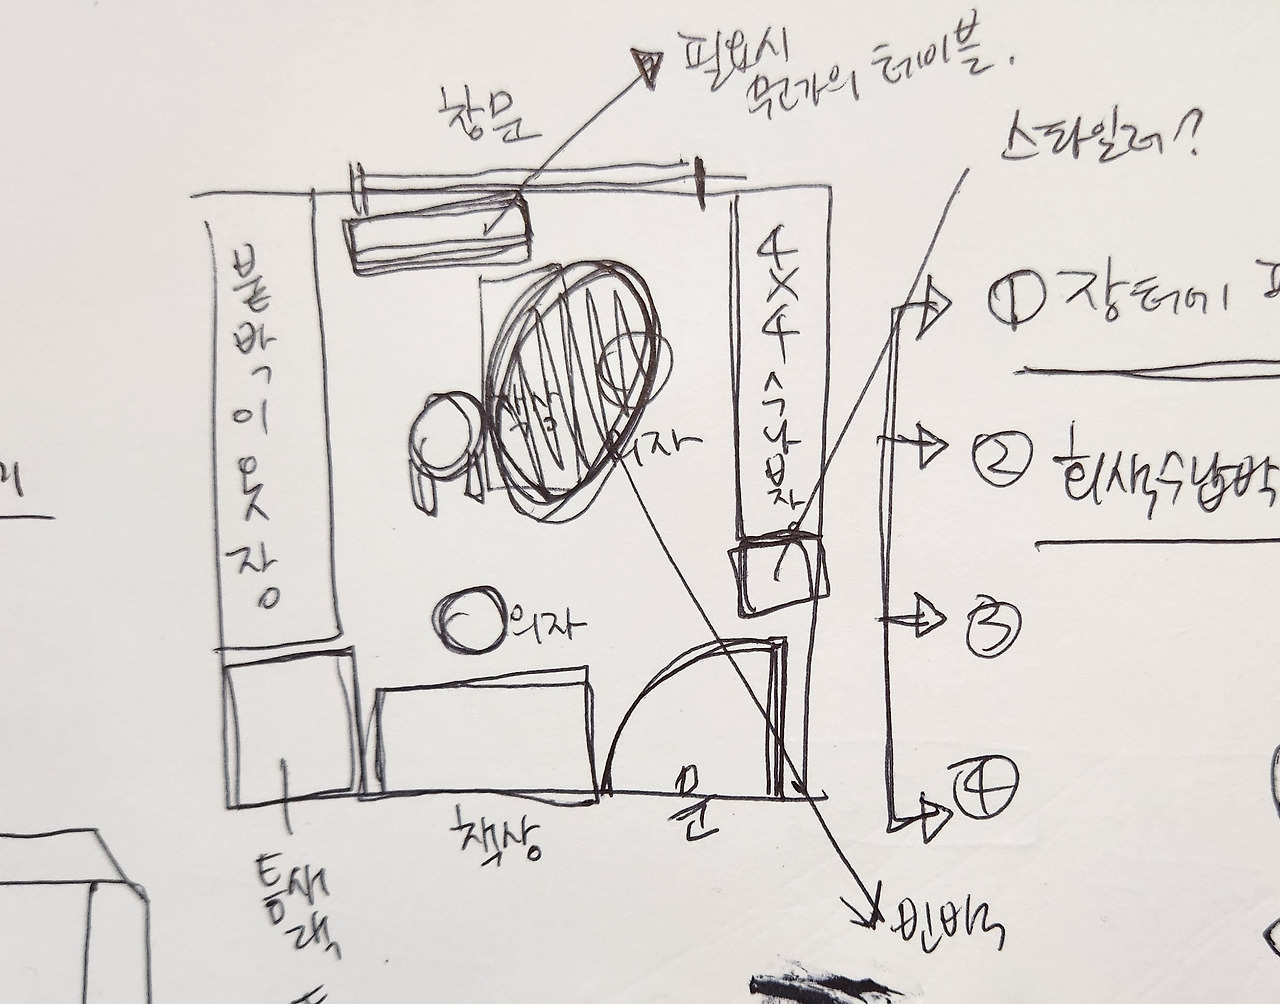 필요시
무언가의 테이블.
창문
스타일러?
붙박이옷장
4x4수납장
① 장터에
의자
② 회색수납박
의자
③
④
문
책상
틈새
랙
빈백